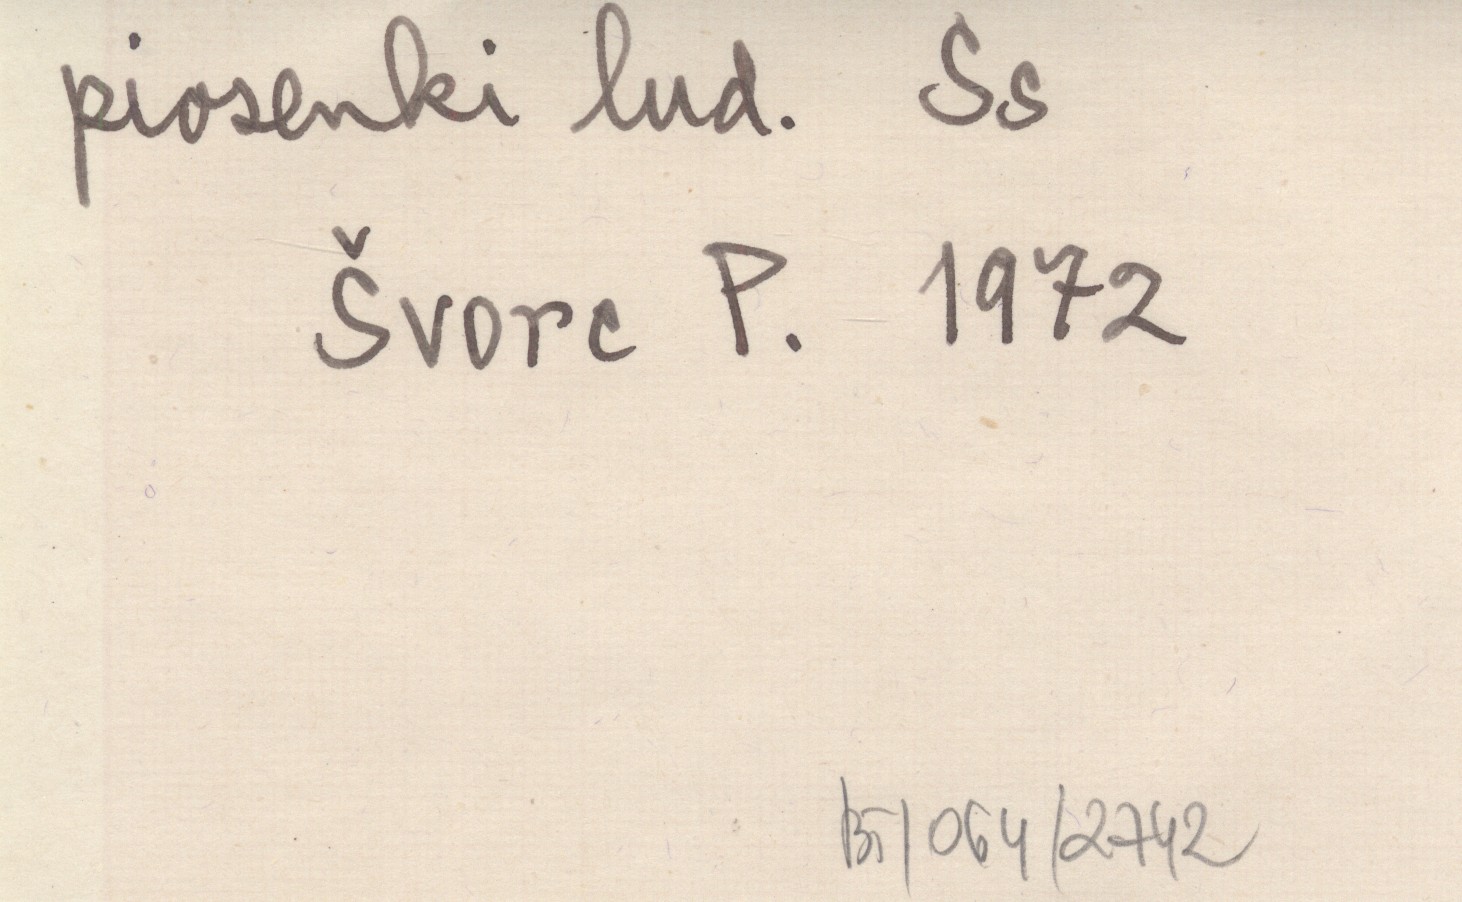 piosenki lud. Ss
Švorc P. 1972
064/2742